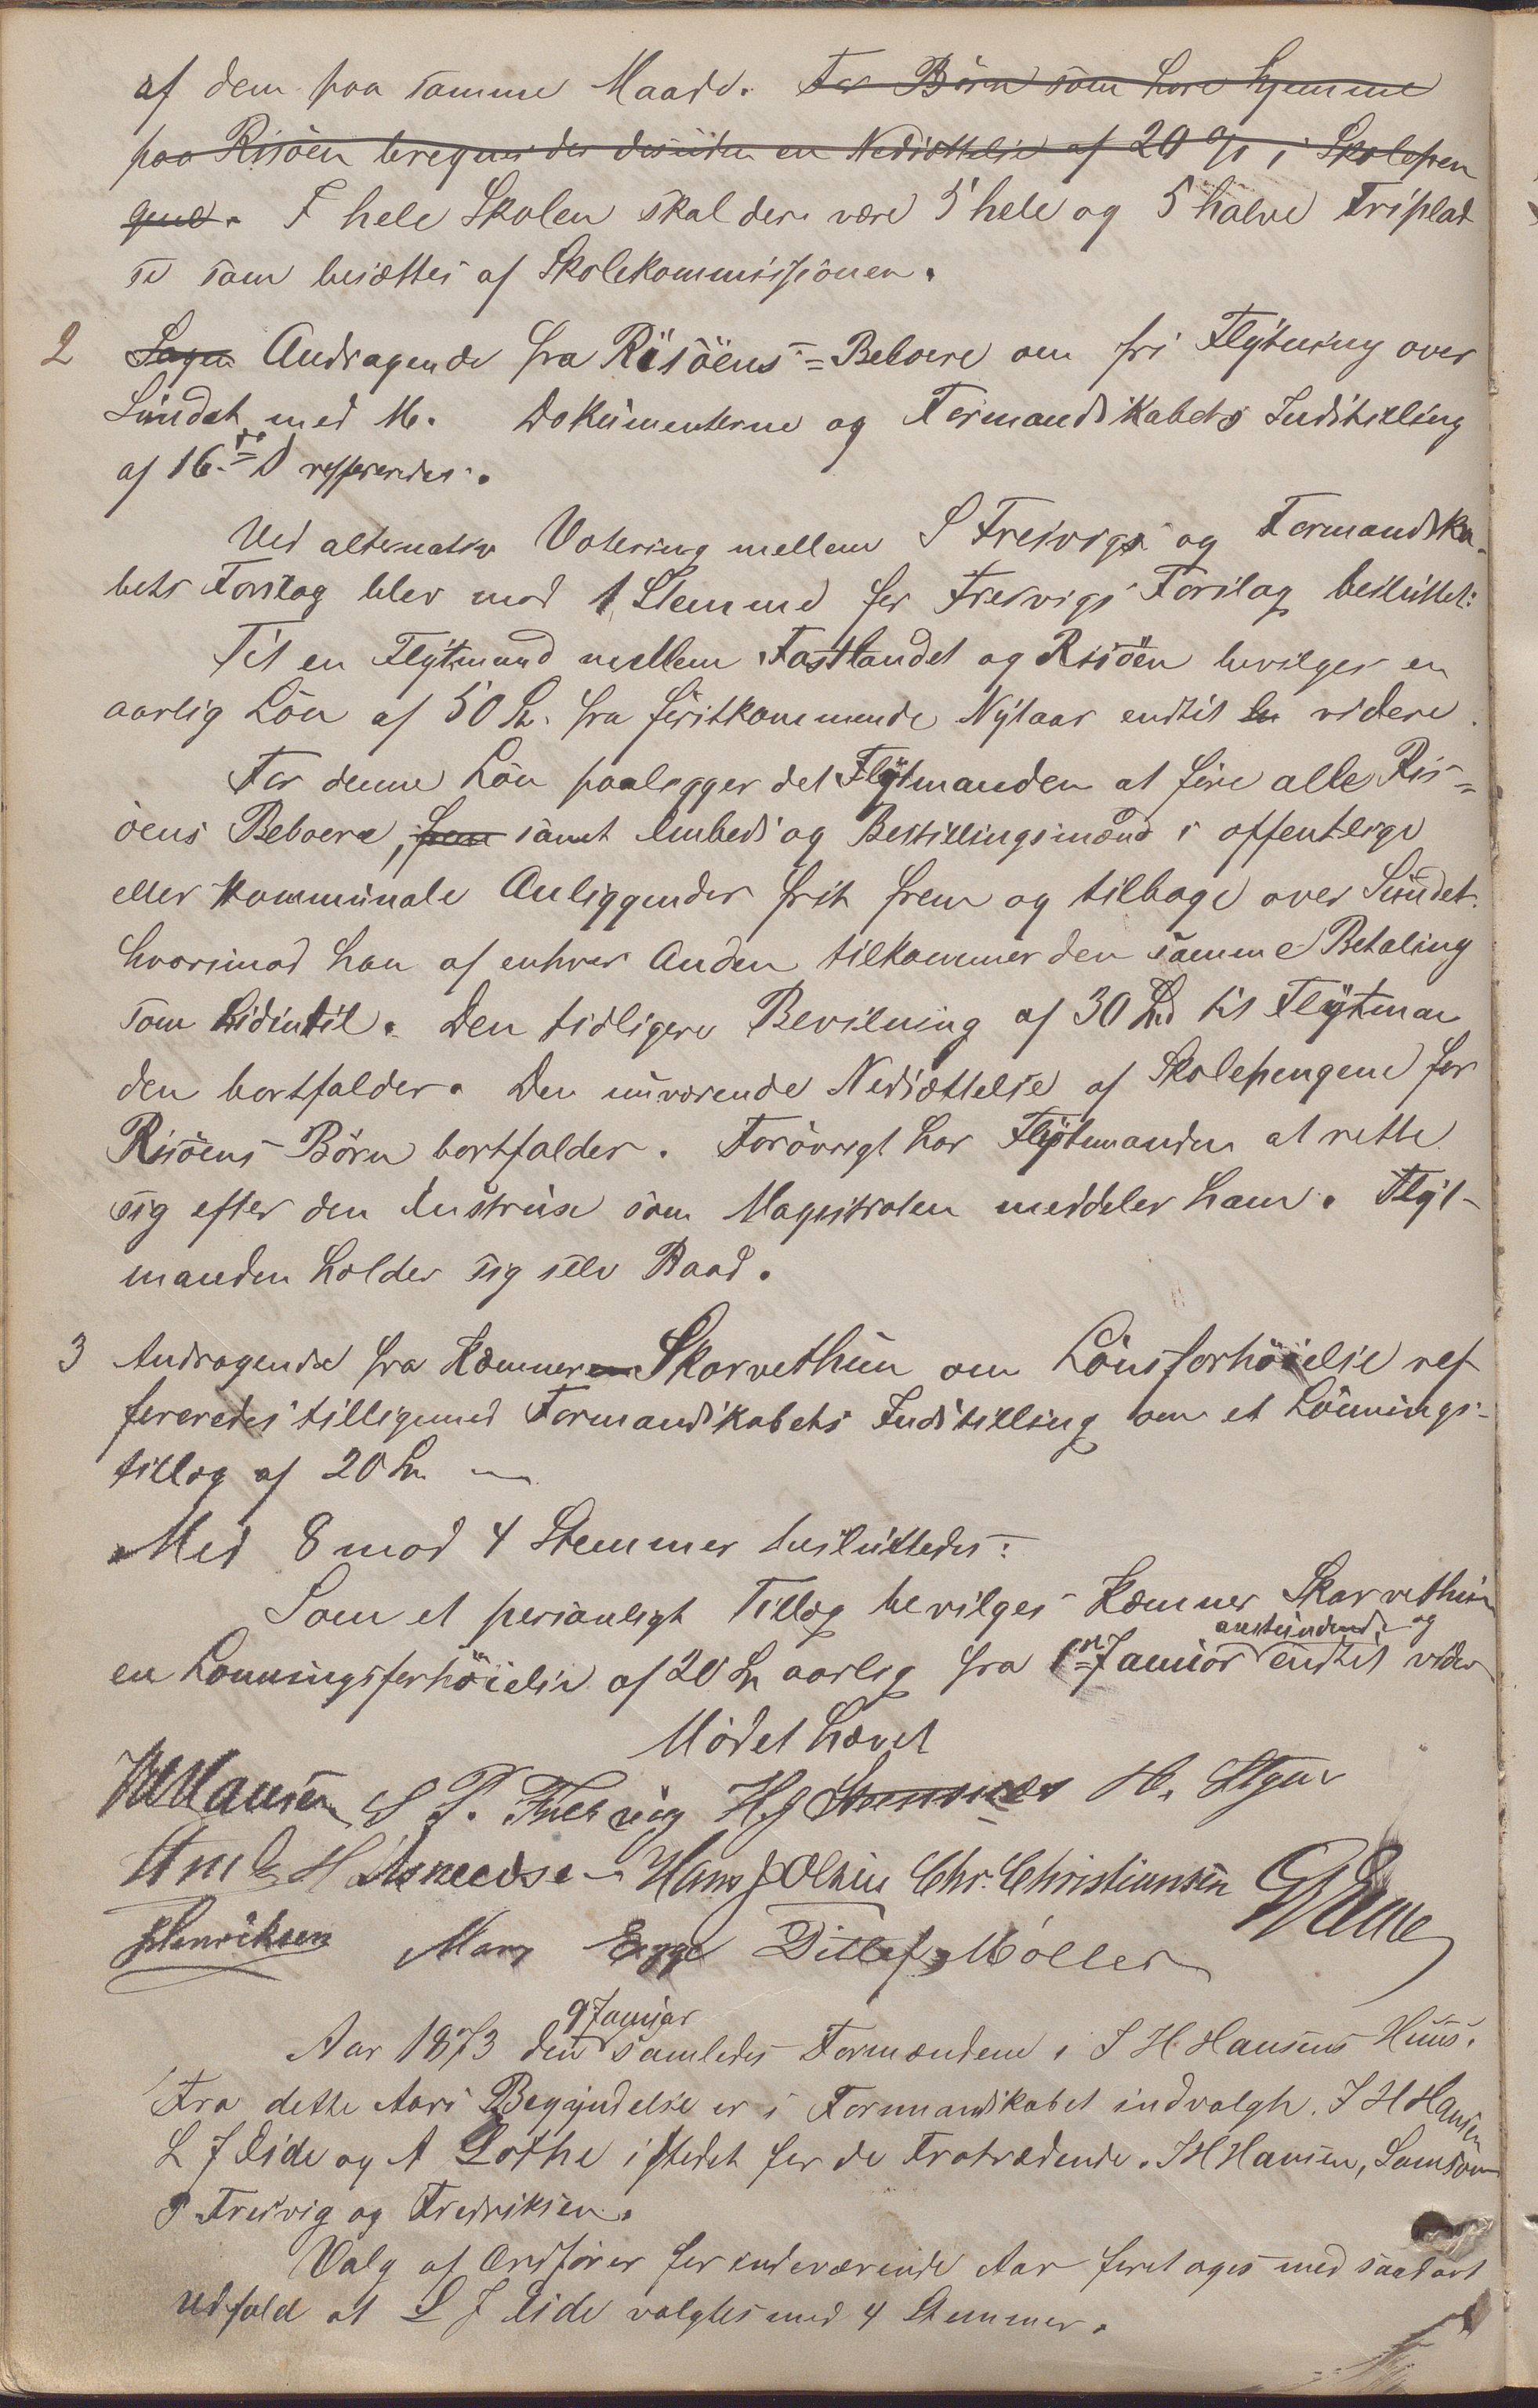 af dem paa samme Maade. For Börn som høre hjemme
paa Risöen beregnes der desuden en Nedsættelse af 20 % i Skolepen
gene. I hele Skolen skal der være 5 hele og 5 halve Friplad
se som besættes af Skolekommissionen.
2 Sagen Andragende fra Risöens Beboere om fri Flytning over
Sundet med M. Dokumenterne og Formandskabets Indstilling
af 16de D refereredes.
Ved alternativ Votering mellem S Freivigs og Formandska-
bets Forslag blev mod 1 Stemme for Freivigs Forslag besluttet:
Til en Flytmand mellem Fastlandet og Risöen bevilges en
aarlig Lön af 50 Spd. fra förstkommende Nytaar indtil videre.
For denne Lön paalegger det Flytmanden at före alle Ris=
öens Beboere, samt Embeds og Bestillingsmænd i offentlige
eller kommunale Anliggender frit frem og tilbage over Sundet.
hvorimod han af enhver Anden tilkommer den samme Betaling
som hidindtil. Den tidligere Bevilgning af 30 Spd til Flytman
den bortfalder. Den nuværende Nedsættelse af Skolepengene for
Risöens Börn bortfalder. Forövrigt har Flytmanden at rette
sig efter den Instrux som Magistraten meddeler ham. Flyt-
manden holder sig selv Baad.
3 Andragende fra Kæmneren Skarvethun om Lönsforhöielse ref
fereredes tilligemed Formandskabets Indstilling om et Lönnings-
tillæg af 20 Spd.
Med 8 mod 4 Stemmer besluttedes:
Som et personligt Tillæg bevilges Kæmner Skarvethun
en Lønningsforhöielse af 20 Spd aarlig fra 1ste Januar anstundende og indtil videre
Mödet hævet
JH Hansen S P. Freivig H. J. H. Stger
H Hans J Olsen Chr. Christiansen
Henriksen Egge Ditlef Möller
Aar 1873 den 9 Januar samledes Formændene i J H. Hansens Huus.
Fra dette Aars Begyndelse er i Formandskabet indvalgt. J H Hansen
L J Eide og A Lothe istedet for de Fratrædende. JH Hansen, Samson
Freivig og Fredriksen.
Valg af Ordförer for indeværende Aar foretages med saadant
Udfald at L J Eide valgtes med 4 Stemmer.